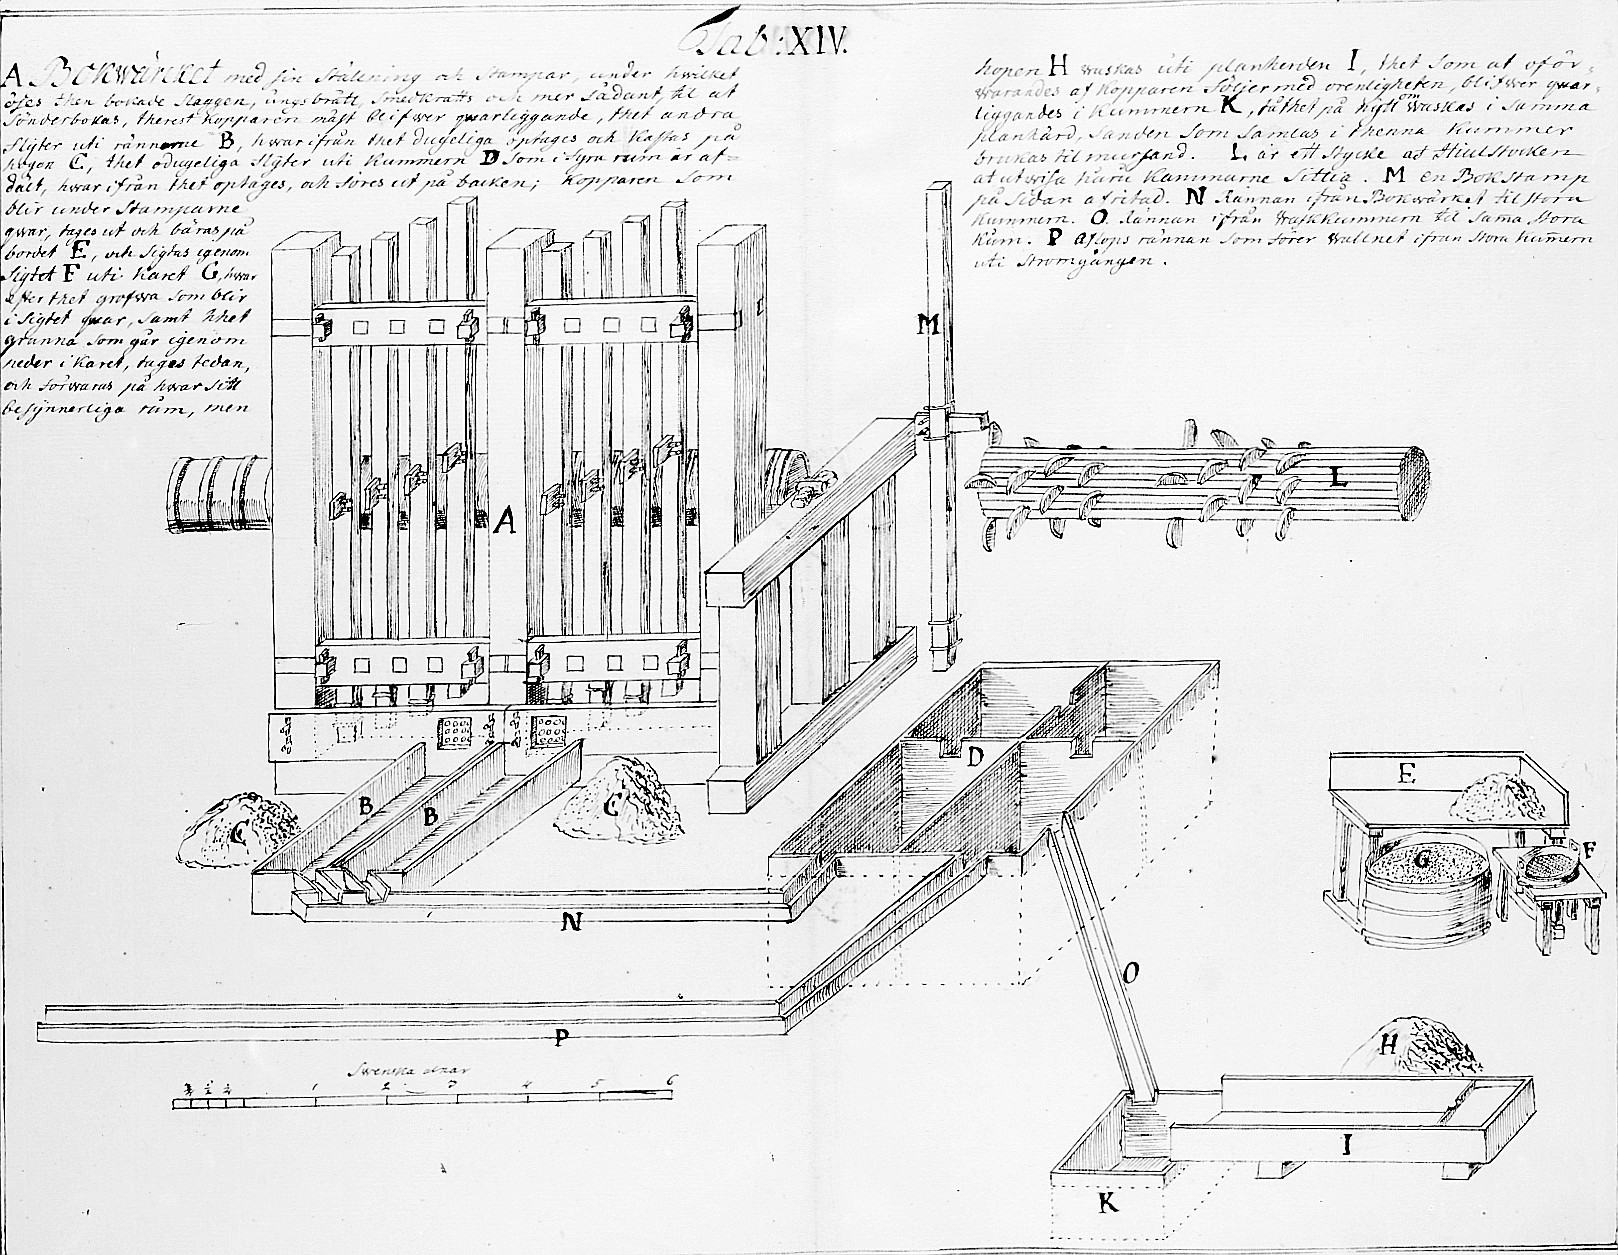 Tab: XIV.
A Bokwärcket med sin ställning och stampar, under hwilket
öses then bokade slaggen, ungsbrått, smedkratts och mer sådant, til at
sönderbokas, therest Kopparen mäst blifwer qwarliggande, thet andra
slÿter uti rännorne B, hwarifrån thet dugeliga optages och kastas på
högen C, thet odugeliga slÿter uti Kummern D som i fÿra rum är af=
delt, hwarifrån thet optages, och föres ut på backen; Kopparen som
blir under Stamparne
qwar, tages ut och bäras på
bordet E, och sigtas igenom
sigtet F uti karet G, hwar
efter thet grofwa som blir
i sigtet qwar, samt thet
granna som går igenom
neder i karet, tages sedan,
och förwaras på hwar sitt
besÿnnerliga rum, men
hopen H waskas uti planherden I, thet som at oför,
warandes af kopparen följer med orenligheten, blifwer qwar,
liggandes i Kummern K, tå thet på nÿtt omwaskas i samma
planhärd, sanden som samlas i thenna Kummer
brukas til mursand. L är ett stÿcke af Hiulstocken
at utwisa huru Kammarne sittia. M en Bokstamp
på sidan afritad. N Rännan ifrån Bokwärket til stora
Kummern. O Rännan ifrån waskkummern til samma stora
Kum. P Aflops rännan som förer wattnet ifrån stora Kummern
uti strömgången.
M
L
A
D
E
B
B
C
C
G
F
N
O
P
H
Swenska alnar
1 2 3 4 5 6
I
K